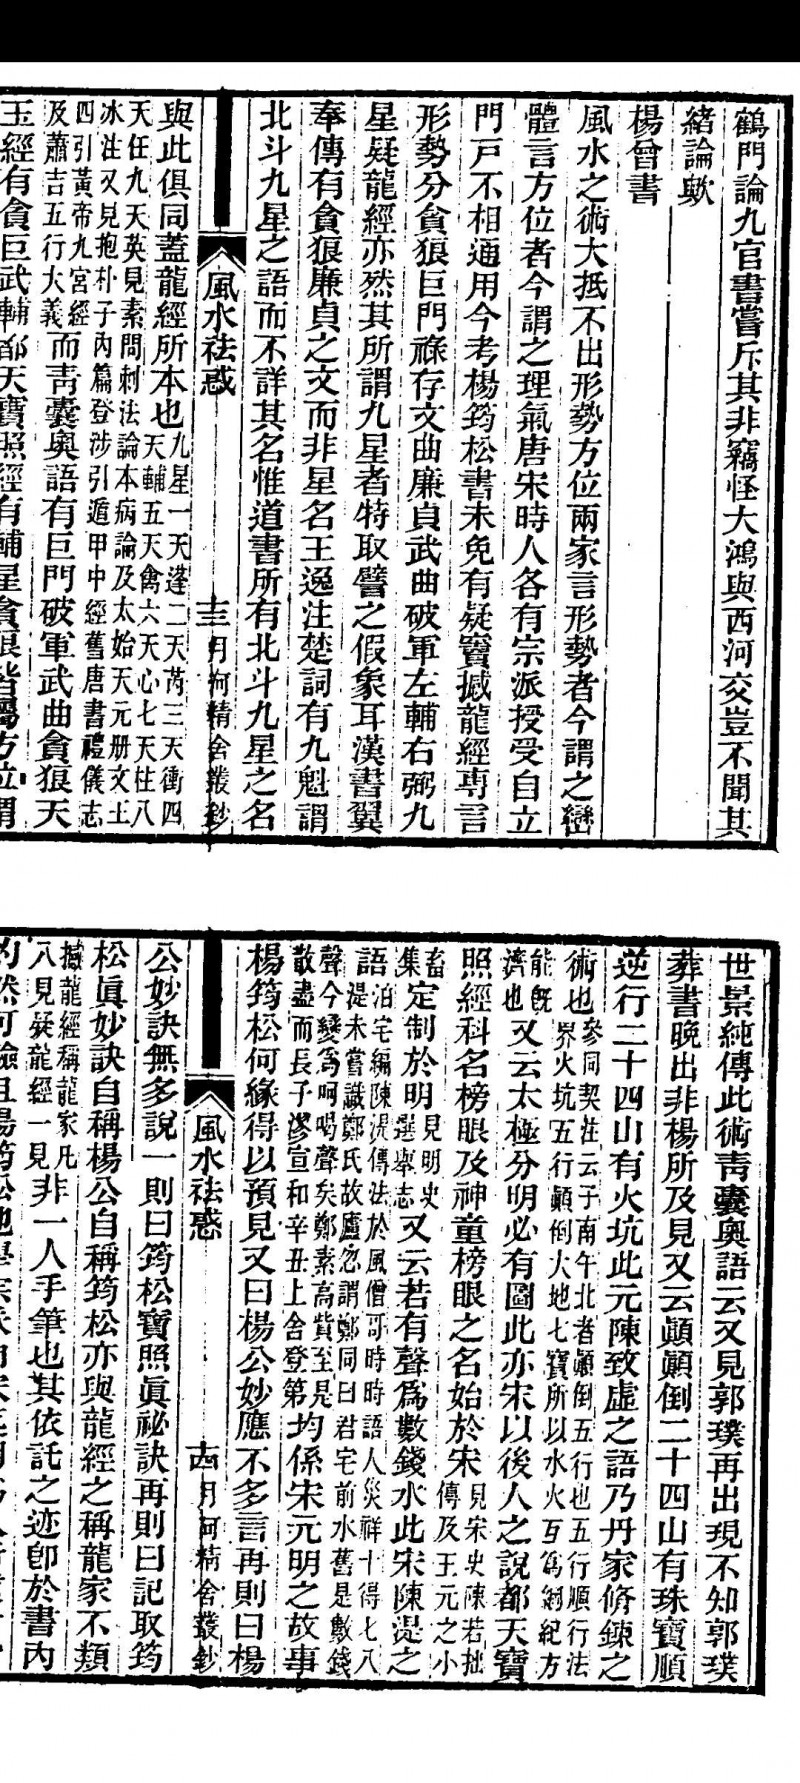 鶴門論九宮書嘗斥其非竊怪大鴻與西河交豈不聞其
緒論歟
楊曾書
風水之術大抵不出形勢方位兩家言形勢者今謂之巒
體言方位者今謂之理氣唐宋時人各有宗派授受自立
門戸不相通用今考楊筠松書未免有疑竇撼龍經専言
形勢分貪狼巨門祿存文曲廉貞武曲破軍左輔右弼九
星疑龍經亦然其所謂九星者特取譬之假象耳漢書翼
奉傳有貪狼廉貞之文而非星名王逸注楚詞有九魁謂
北斗九星之語而不詳其名惟道書所有北斗九星之名
風水袪惑 十三 月河精舍叢鈔
與此俱同蓋龍經所本也九星一天逢二天芮三天衝四
天輔五天禽六天心七天柱八
天任九天英見素問刺法論本病論及太始天元册文王
冰注又見抱朴子內篇登涉引遁甲中經舊唐書禮儀志
四引黃帝九宮經
及蕭吉五行大義而靑囊奥語有巨門破軍武曲貪狼天
玉經有貪巨武輔都天寶照經有輔星貪狼皆屬方位謂
世景純傳此術靑囊奥語云又見郭璞再出現不知郭璞
葬書晚出非楊所及見又云顚顚倒二十四山有珠寶順
逆行二十四山有火坑此元陳致虛之語乃丹家修鍊之
術也參同契注云子南午北者顚倒五行也五行順行法
界火坑五行顚倒大地七寶所以水火互爲綱紀方
能旣
濟也又云太極分明必有圖此亦宋以後人之說都天寶
照經科名榜眼及神童榜眼之名始於宋見宋史陳若拙
傳及王元之小
畜
集定制於明見明史
選舉志又云若有聲爲數錢水此宋陳湜之
語泊宅編陳湜傳法於風僧哥時時語人災祥十得七八
湜未嘗識鄭氏故廬忽謂鄭同曰君宅前水舊是數錢
聲今變爲呵喝聲矣鄭素高貲至是
散盡而長子滲宣和辛丑上舍登第均係宋元明之故事
楊筠松何緣得以預見又曰楊公妙應不多言再則曰楊
風水袪惑 十四 月河精舍叢鈔
公妙訣無多說一則曰筠松寶照眞祕訣再則曰記取筠
松眞妙訣自稱楊公自稱筠松亦與龍經之稱龍家不類
撼龍經稱龍家凡
八見疑龍經一見非一人手筆也其依託之迹卽於書內